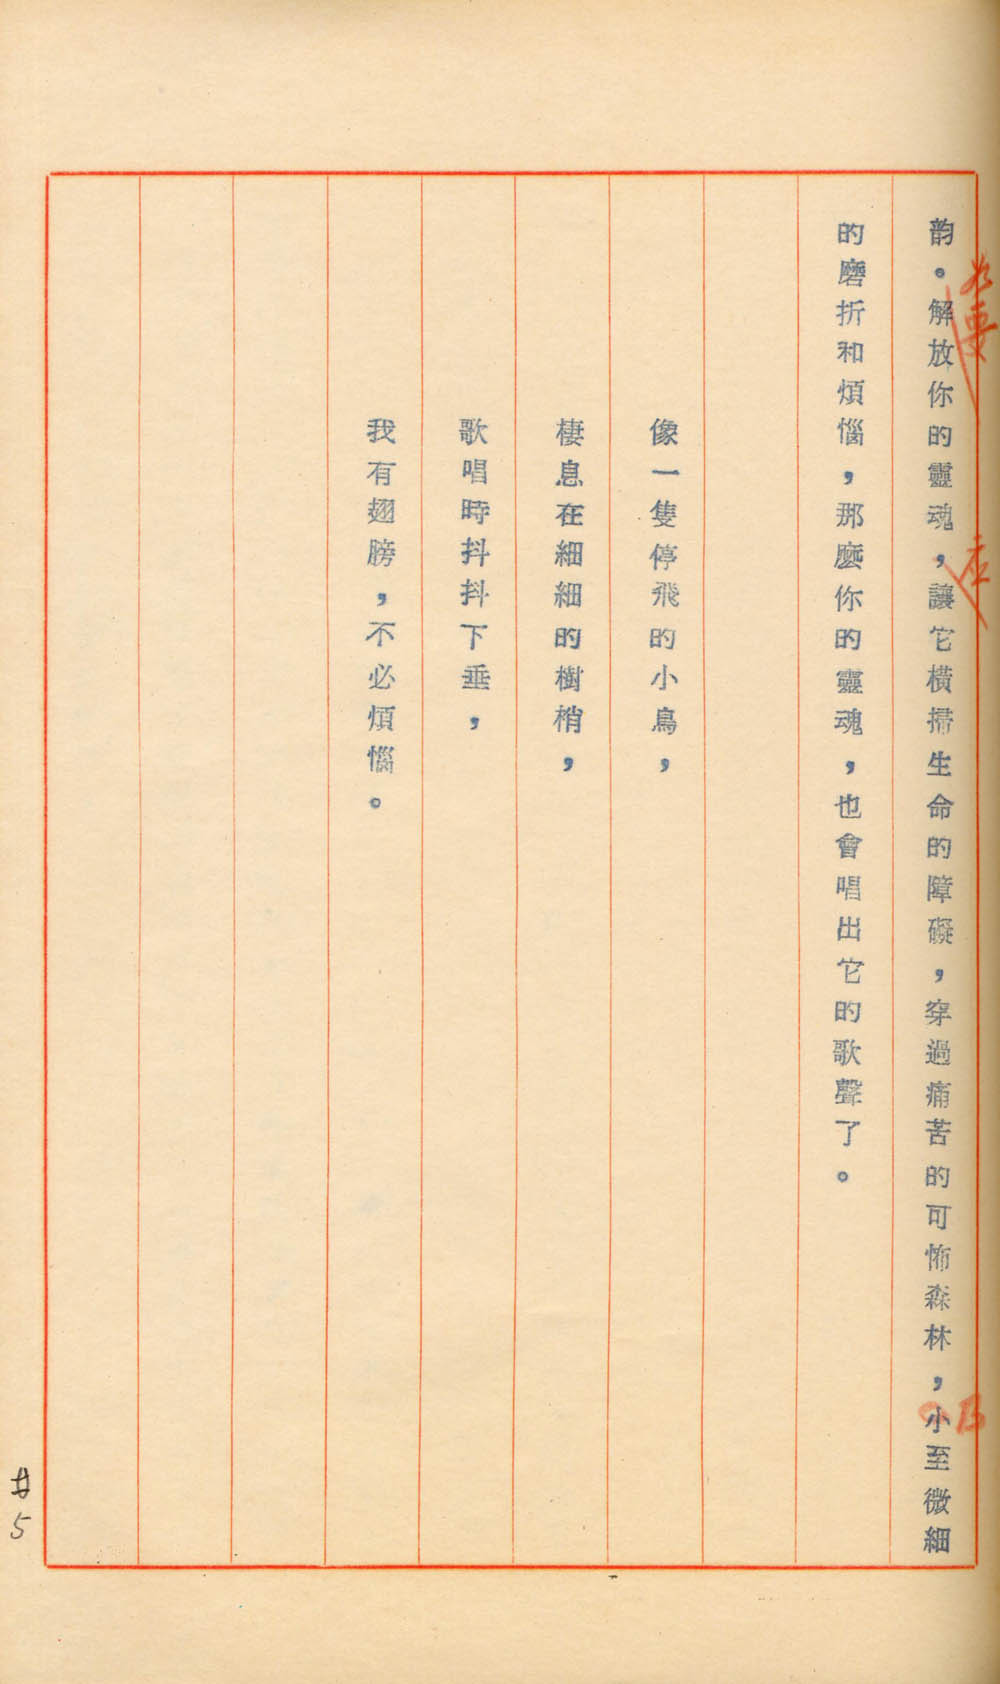 韵。解放你的靈魂，讓它橫掃生命的障礙，穿過痛苦的可怖森林，小至微細
的磨折和煩惱，那麼你的靈魂，也會唱出它的歌聲了。
像一隻停飛的小鳥，
棲息在細細的樹梢，
歌唱時抖抖下垂，
我有翅膀，不必煩惱。
要
应
乃
#5